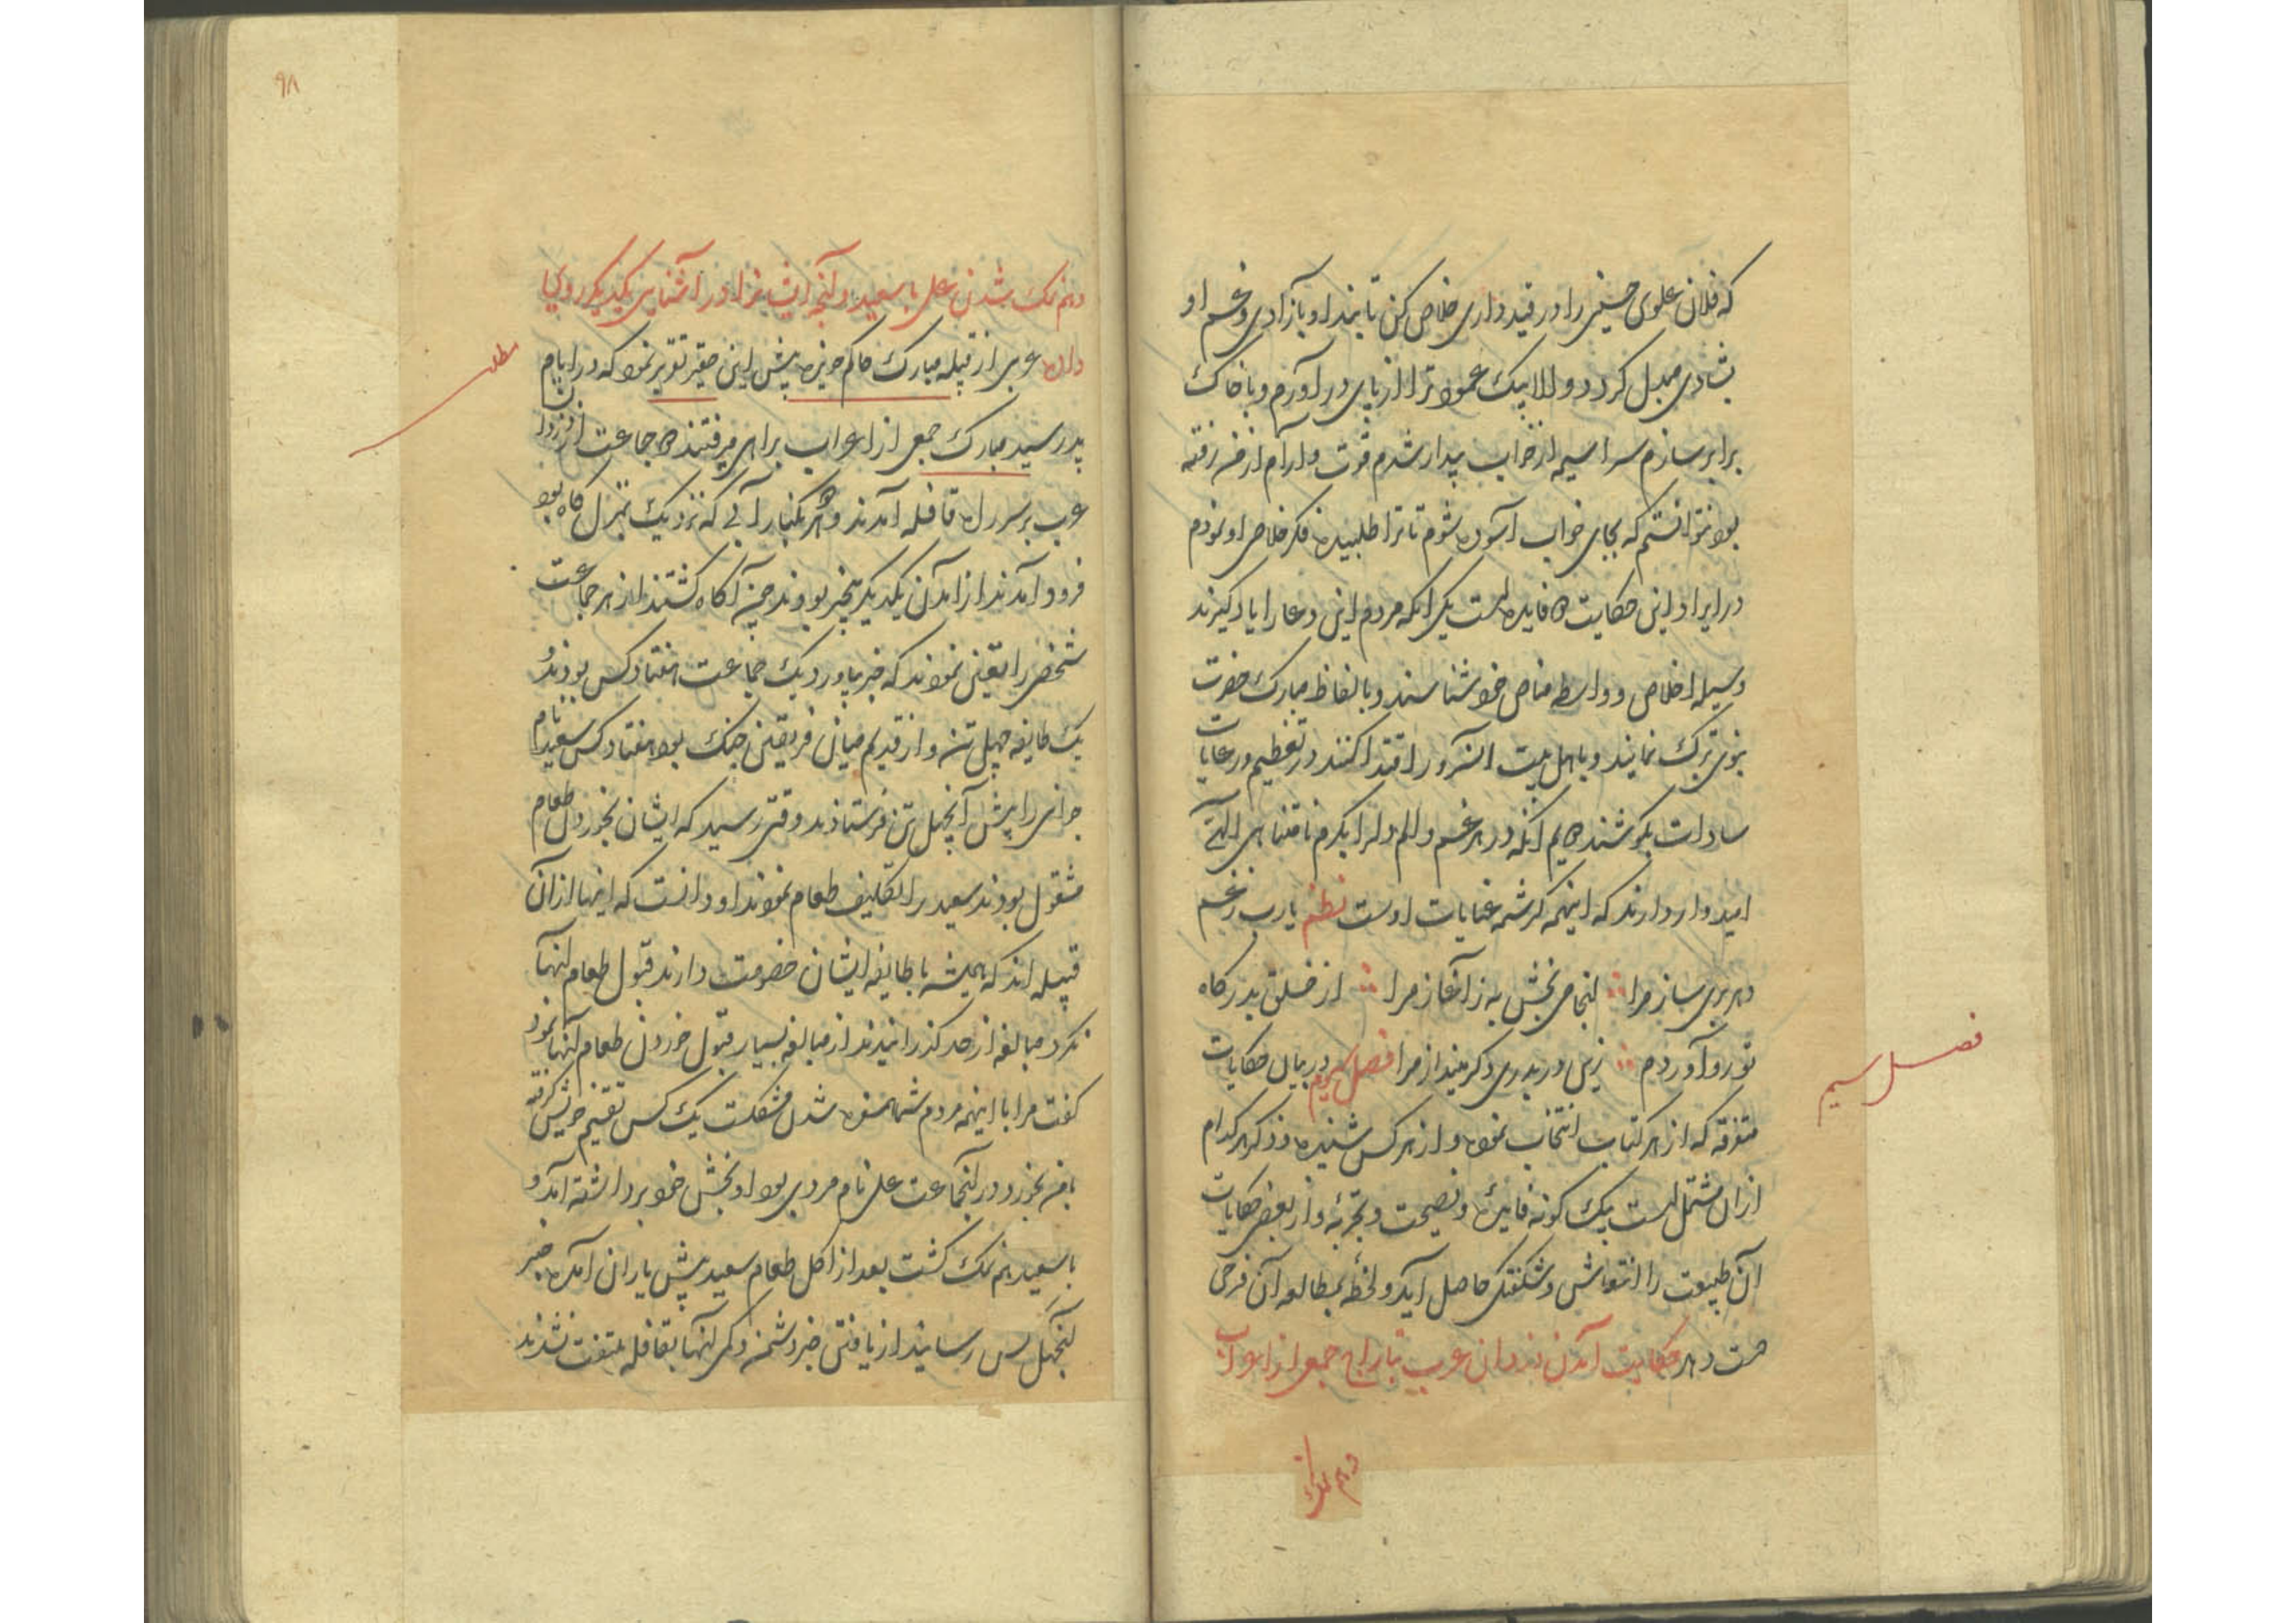 که فلان علوی حسینی را در قید داری خلاص کن تا بند او بآزادی و غم او
بشادی مبدل کردد و الا بیک عمود ترا از پای در آورم و با خاک
برابر سازم سراسیمه از خواب بیدار شدم قوت و آرام از من رفته
بود نتوانستم که بجای خواب آسوده شوم تا ترا طلبیده فکر خلاص او نمودم
در ایراد این حکایت دو فایده است یکی انکه مردم این دعا را یاد کیرند
وسیله اخلاص و واسطه مناص خود شناسند و بالفاظ مبارک حضرت
نبوی تبرک نمایند و باهل بیت انسرور اقتدا کنند و در تعظیم و رعایات
سادات بکوشند دویم انکه در هر غم و الم دل را بکرم نامتناهی الهی
امیدوار دارند که اینهمه کرشمه عنایات اوست نظم یارب ز غم
دهر بری ساز مرا انجامی بخش به ز آغاز مرا از خلق بدرکاه
تو رو آوردم زین در بدری دکر مینداز مرا فصل سیوم در بیان حکایات
متفرقه که از هر کتاب انتخاب نموده و از هر کس شنیده و ذکر هر کدام
ازان مشتمل است بیک کونه فایده و نصیحت و تجربه و از بعض حکایات
آن طبیعت را انتعاش و شکفتکی حاصل آید و لحظهٔ بمطالعه آن فرحی
دست دهد حکایت آمدن دزدان عرب بتاراج جمعی از اعراب
و هم نمک
فصل سیم
۹۸
و هم نمک شدن علی با سعید و آنچه ایشانرا در آشنایی یکدیکر روی
داده عربی از قبیله مبارک حاکم حویزه پیش این حقیر تقریر نمود که در ایام
پدر سید مبارک جمعی از اعراب براهی میرفتند دو جماعت از دزدان
عرب بر سر راه قافله آمدند و هر دو بکنار آبی که نزدیک بمنزل کاه بود
فرود آمدند از آمدن یکدیکر بیخبر بودند چون آکاه کشتند از هر جماعت
شخصی را تعین نمودند که خبر بیاورد یک جماعت هفتاد کس بودند و
یک طایفه چهل تن و از قدیم میان فریقین جنک بود هفتاد کس سعید نام
جوانی را پیش آنچهل تن فرستادند وقتی رسید که ایشان بخوردن طعام
مشغول بودند سعید را تکلیف طعام نمودند او دانست که اینها از آن
قبیله اند که همیشه با طایفه ایشان خصومت دارند قبول طعام آنها
نکرد مبالغه از حد کذرانیدند از مبالغه بسیار قبول خوردن طعام آنها نمود
کفت مرا با اینهمه مردم شما همسفره شدن مشکلست یک کس تقسیم خویش کرفته
با من بخورد در آنجماعت علی نام مردی بود او بخش خود برداشته آمد و
با سعید هم نمک کشت بعد از اکل طعام سعید پیش یاران آمده خبر
آنچهل کس رسانید از یافتن خبر دشمن و کمی آنها بقافله ملتفت نشدند
مطلب